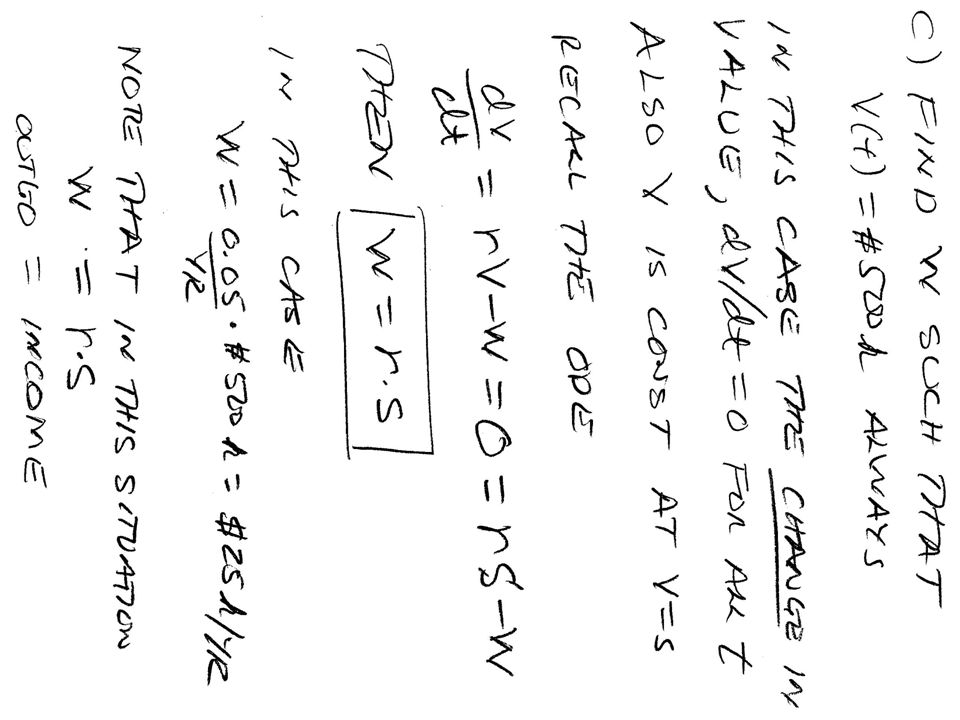 C) FIND W SUCH THAT
V(t) = $500k ALWAYS
IN THIS CASE THE CHANGE IN
VALUE, dV/dt = 0 FOR ALL t
ALSO V IS CONST AT V=S
RECALL THE ODE
dV/dt = rV-W = 0 = rS-W
THEN W = r.S
IN THIS CASE
W = 0.05/YR . $500k = $25k/YR
NOTE THAT IN THIS SITUATION
W = r.S
OUTGO = INCOME